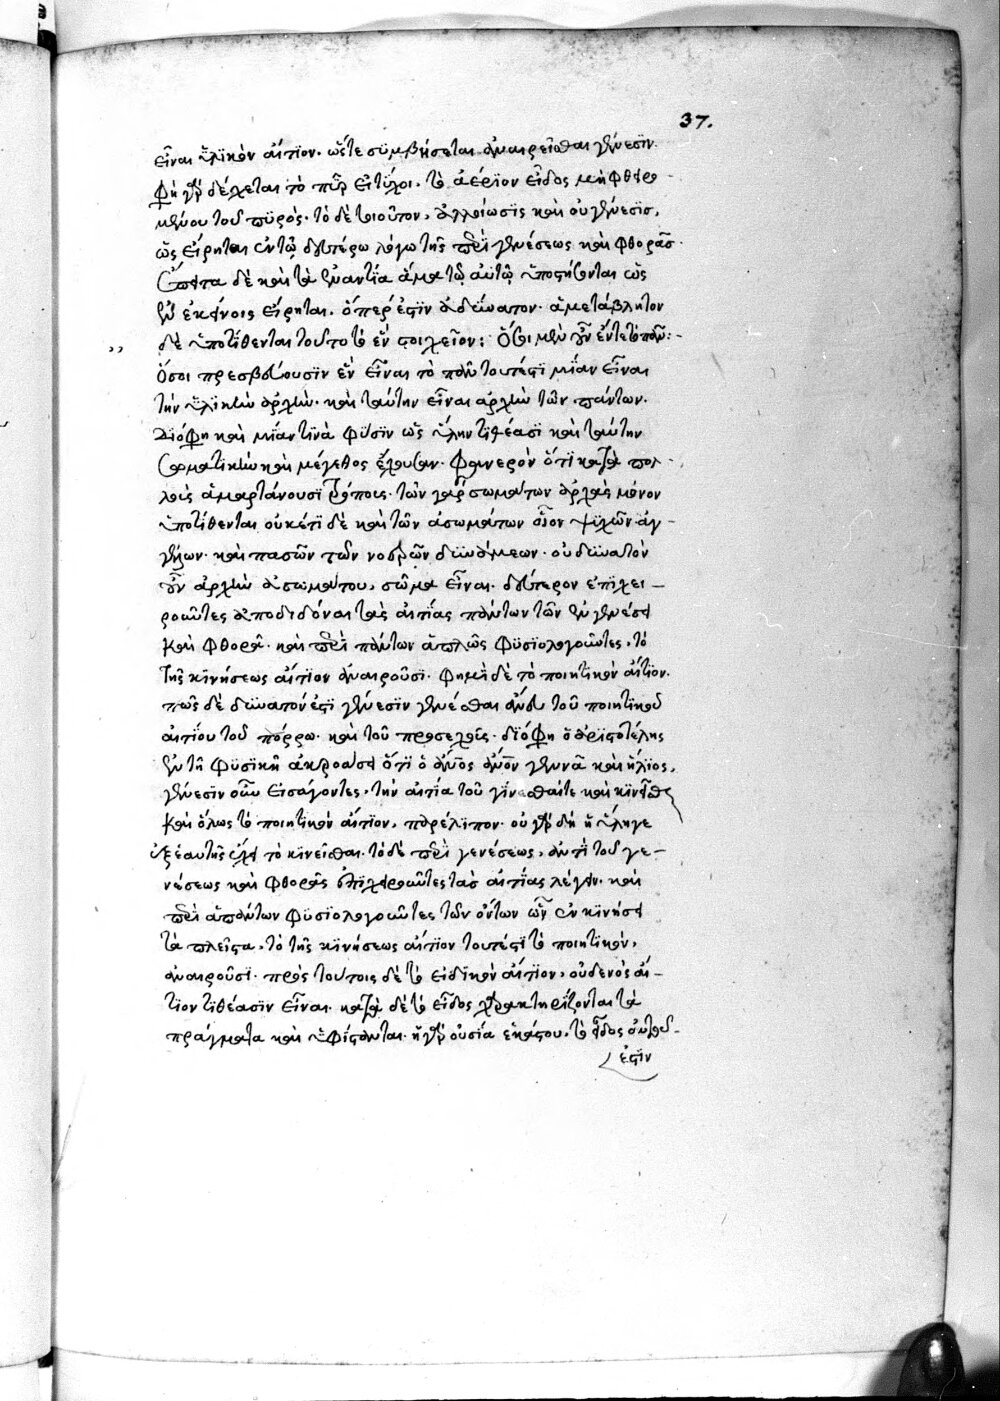 37.
εἶναι ὑλικὸν αἴτϊον. ὥστε συμβήσεται ἀναιρεῖσθαι γένεσϊν.
φη γὰρ δέχεται τὸ πῦρ εἰ τύχοι. τὸ ἀέριον εἶδος μὴ φθειρο-
μένου τοῦ πυρός. τὸ δὲ τοιοῦτον, ἀλλοίωσϊς καὶ οὐ γένεσϊς,
ὡς εἴρηται ἐν τῷ δευτέρω λόγω τῆς περὶ γενέσεως καὶ φθορᾶς.
ἔπειτα δὲ καὶ τὰ ἐναντία ἅμα τῷ αὐτῷ ὑποστήσονται ὡς
ἐν ἐκείνοις εἴρηται. ὅπερ ἐστϊν ἀδύνατον. ἀμετάβλητον
δὲ ὑποτίθενται τοῦτο τὸ ἓν στοιχεῖον: Ὅσοι μὲν οὖν ἕν τε τὸ πᾶν:-
Ὅσοι πρεσβεύουσϊν ἓν εἶναι τὸ πᾶν τουτέστϊ μΐαν εἶναι
τὴν ὑλικὴν ἀρχὴν. καὶ ταύτην εἶναι ἀρχὴν τῶν πάντων.
Διό φη καὶ μΐαν τϊνὰ φύσϊν ὡς ὕλην τιθέασϊ καὶ ταύτην
σωματικὴν καὶ μέγεθος ἔχουσαν. φανερὸν ὅτϊ κατὰ πολ-
λοὺς ἁμαρτάνουσϊ τρόπους. τῶν γὰρ σωμάτων ἀρχὰς μόνον
ὑποτίθενται οὐκέτϊ δὲ καὶ τῶν ἀσωμάτων οἷον ψυχῶν ἀγ-
γέλων. καὶ πασῶν τῶν νοερῶν δυνάμεων. οὐ δυνατὸν
οὖν ἀρχὴν ἀσωμάτου, σῶμα εἶναι. δεύτερον ἐπϊχει-
ροῦντες ἀποδιδόναι τὰς αἰτίας πάντων τῶν ἐν γενέσει
καὶ φθορᾶ. καὶ περὶ πάντων ἁπλῶς φυσϊολογοῦντες, τὸ
τῆς κινήσεως αἴτϊον ἀναιροῦσϊ. φημὶ δὲ τὸ ποιητικὸν αἴτϊον.
πῶς δὲ δυνατόν ἐστϊ γένεσϊν γενέσθαι ἄνευ τοῦ ποιητικοῦ
αἰτΐου τοῦ πόρρω. καὶ τοῦ προσεχοῦς. διό φη ὁ ἀριστοτέλης
ἐν τῆ φυσϊκῆ ἀκροάσει ὅτϊ ὁ ἄνος ἄνον γεννᾶ καὶ ἥλιος,
γένεσϊν οὖν εἰσάγοντες, τὴν αἰτία τοῦ γίνεσθαί τε καὶ κϊνεῖσθαι
καὶ ὅλως τὸ ποιητικὸν αἴτϊον, παρέλϊπον. οὐ γὰρ δὴ ἡ ὕλη γε
ἐξ ἑαυτῆς ἔχει τὸ κϊνεῖσθαι. τὸ δὲ περὶ γενέσεως, ἀντὶ τοῦ γε-
νέσεως καὶ φθορᾶς ἐπϊχειροῦντες τὰς αἰτΐας λέγειν. καὶ
περὶ ἁπάντων φυσϊολογοῦντες τῶν ὄντων ὧν ἐν κϊνήσει
τὰ πλεῖστα, τὸ τῆς κϊνήσεως αἴτϊον τουτέστϊ τὸ ποιητικὸν,
ἀναιροῦσϊ. πρὸς τούτοις δὲ τὸ εἰδικὸν αἴτϊον, οὐδενὸς αἴ-
τϊον τϊθέασϊν εἶναι. κατὰ δὲ τὸ εἶδος χαρακτηρίζονται τὰ
πράγματα καὶ ὑφίστανται. ἡ γὰρ οὐσία ἑκάστου, τὸ εἶδος αὐτοῦ-
ἐστϊν